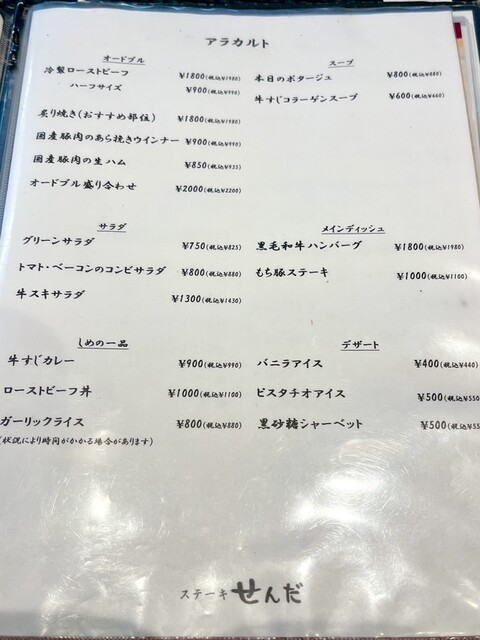 アラカルト
オードブル
冷製ローストビーフ ¥1800(税込¥1980)
ハーフサイズ ¥900(税込¥990)
炙り焼き(おすすめ部位) ¥1800(税込¥1980)
国産豚肉のあら挽きウインナー ¥900(税込¥990)
国産豚肉の生ハム ¥850(税込¥935)
オードブル盛り合わせ ¥2000(税込¥2200)
スープ
本日のポタージュ ¥800(税込¥880)
牛すじコラーゲンスープ ¥600(税込¥660)
サラダ
グリーンサラダ ¥750(税込¥825)
トマト・ベーコンのコンビサラダ ¥800(税込¥880)
牛スキサラダ ¥1300(税込¥1430)
メインディッシュ
黒毛和牛ハンバーグ ¥1800(税込¥1980)
もち豚ステーキ ¥1000(税込¥1100)
しめの一品
牛すじカレー ¥900(税込¥990)
ローストビーフ丼 ¥1000(税込¥1100)
ガーリックライス ¥800(税込¥880)
(状況により時間がかかる場合があります)
デザート
バニラアイス ¥400(税込¥440)
ピスタチオアイス ¥500(税込¥550
黒砂糖シャーベット ¥500(税込¥55
ステーキ せんだ